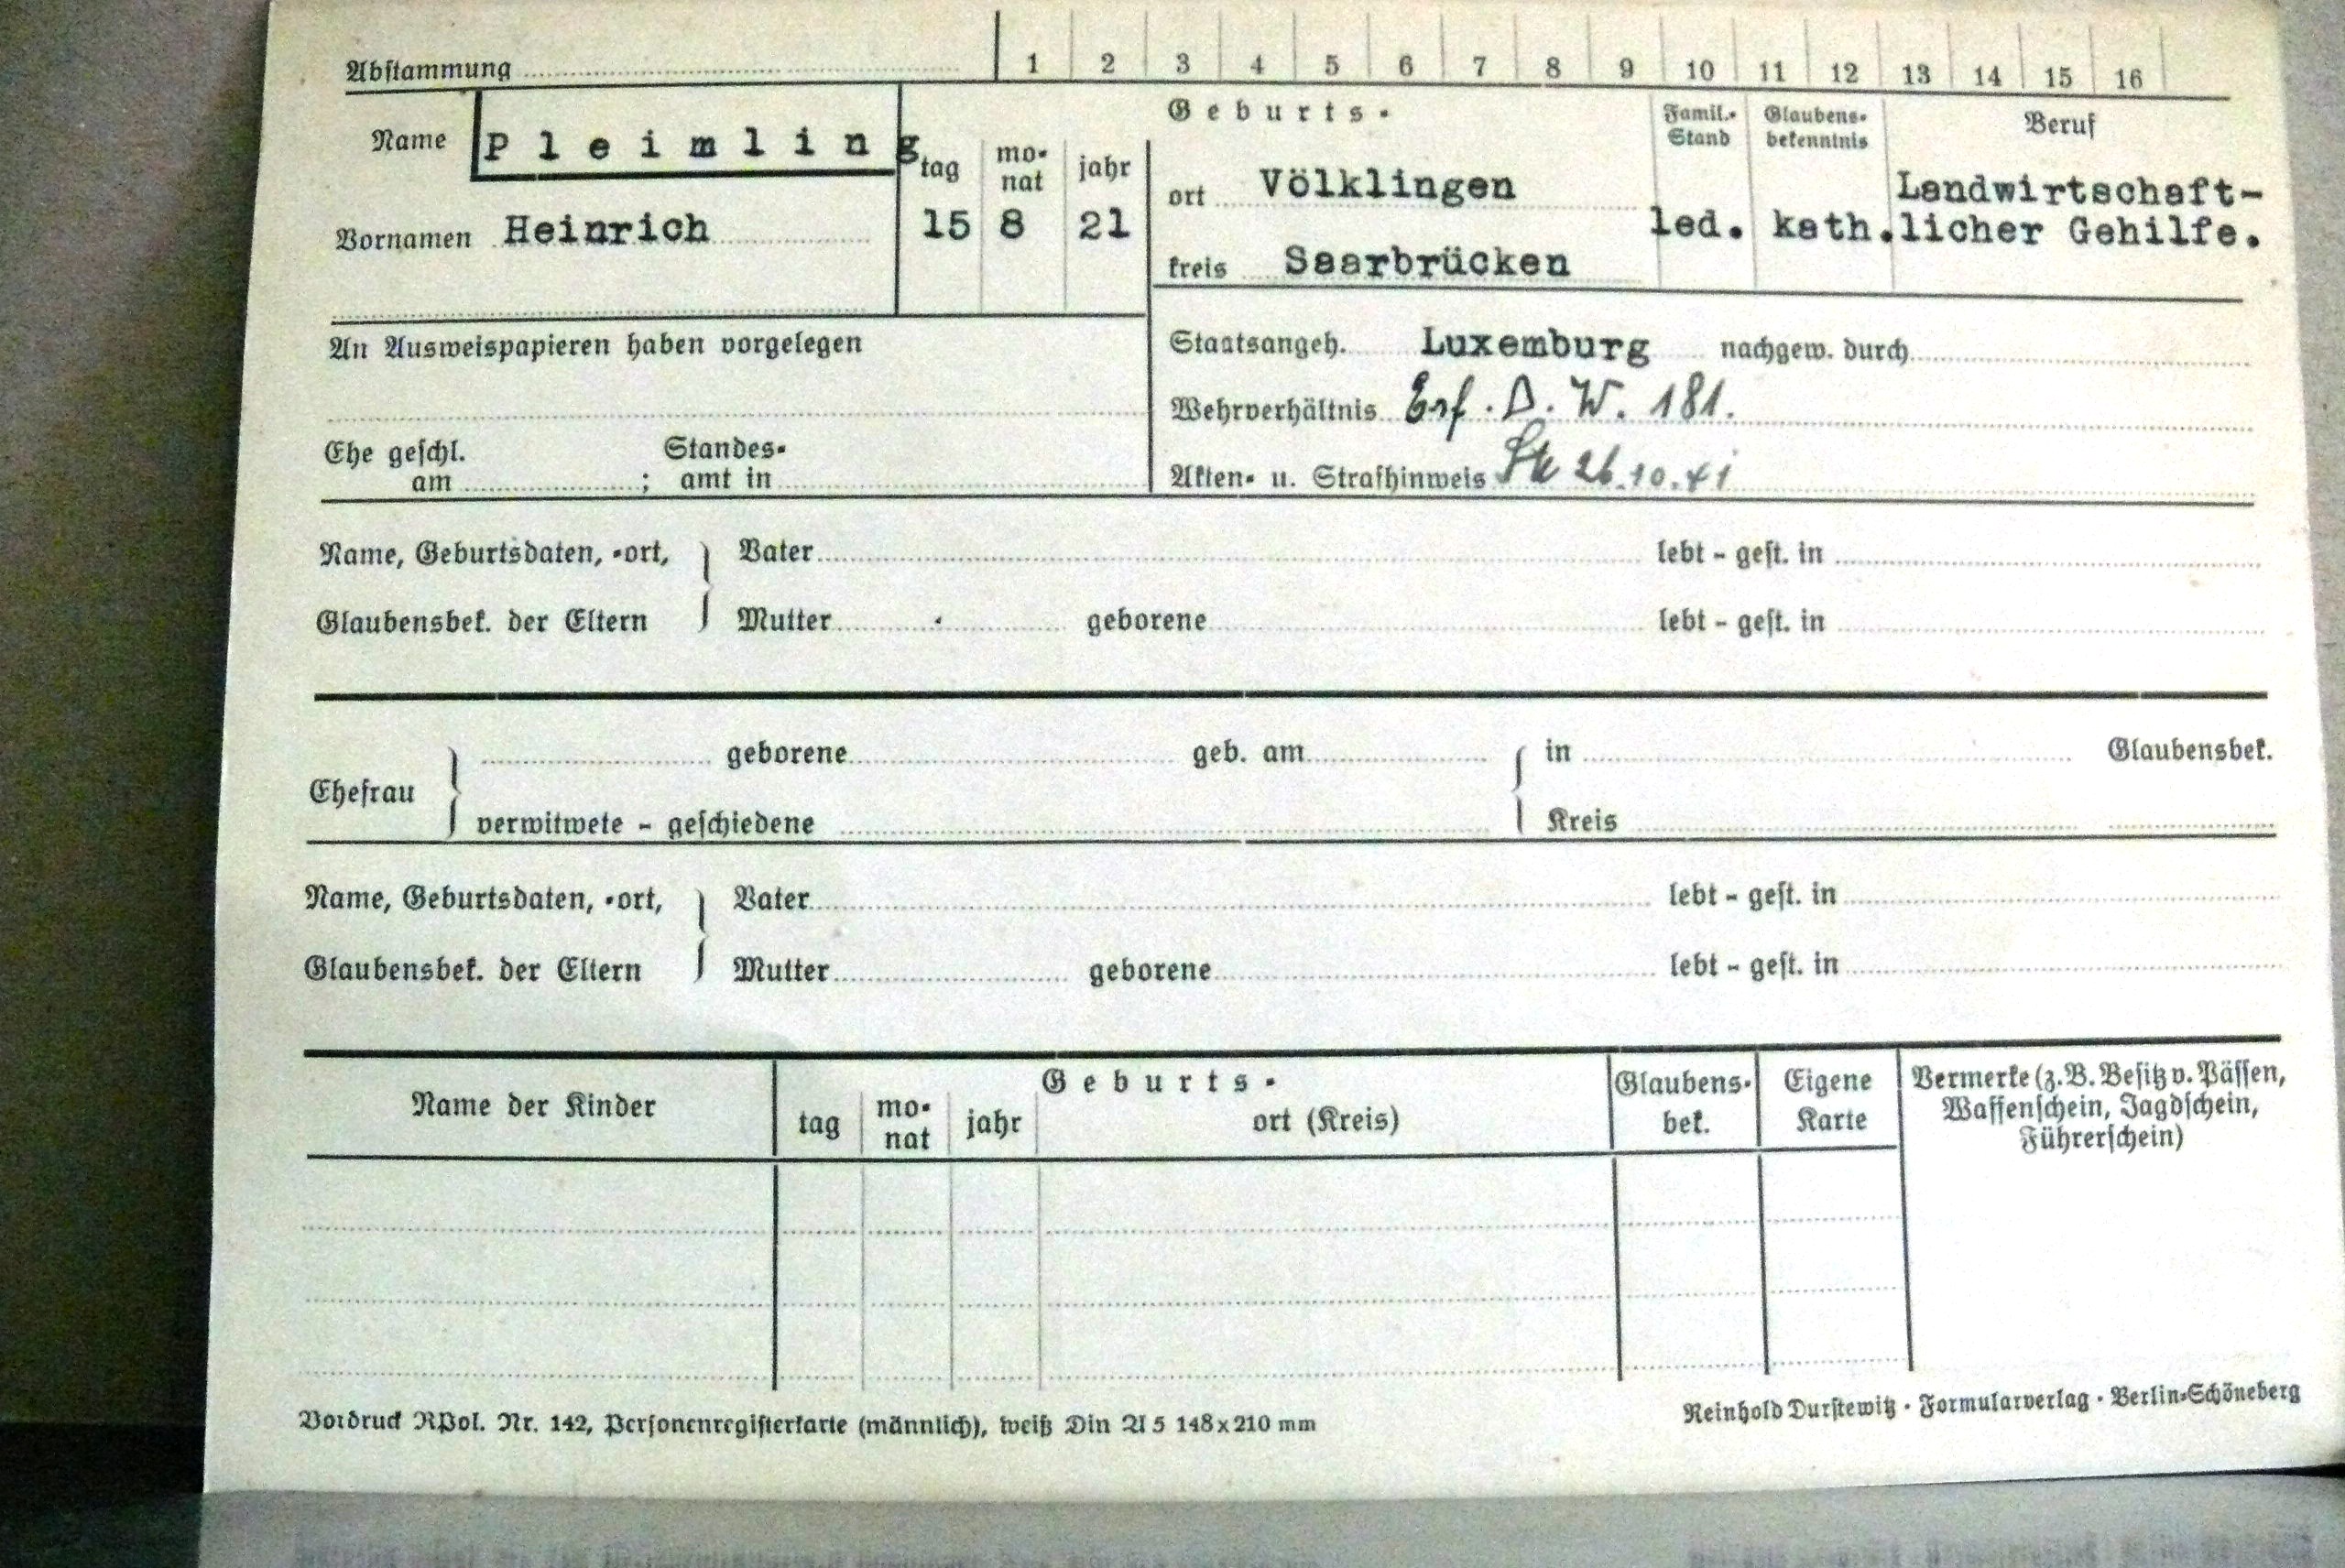 Abstammung 1 2 3 4 5 6 7 8 9 10 11 12 13 14 15 16
Name Pleimling
Vornamen Heinrich
Geburts-
tag monat jahr
15 8 21
ort Völklingen
kreis Saarbrücken
Famil.-Stand
led.
Glaubens-bekenntnis
kath.
Beruf
Landwirtschaft-
licher Gehilfe.
An Ausweispapieren haben vorgelegen
Staatsangeh. Luxemburg nachgew. durch
Wehrverhältnis Erf. D. W. 181.
Ehe geschl. am ; Standesamt in
Akten- u. Strafhinweis 26.10.41
Name, Geburtsdaten, -ort, Vater lebt - gest. in
Glaubensbek. der Eltern Mutter geborene lebt - gest. in
Ehefrau geborene geb. am in Glaubensbek.
verwitwete - geschiedene Kreis
Name, Geburtsdaten, -ort, Vater lebt - gest. in
Glaubensbek. der Eltern Mutter geborene lebt - gest. in
Name der Kinder
Geburts-
tag monat jahr ort (Kreis)
Glaubens-bek.
Eigene Karte
Vermerke (z. B. Besitz v. Pässen,
Waffenschein, Jagdschein,
Führerschein)
Vordruck RPol. Nr. 142, Personenregisterkarte (männlich), weiß Din A 5 148x210 mm
Reinhold Durstewitz · Formularverlag · Berlin-Schöneberg